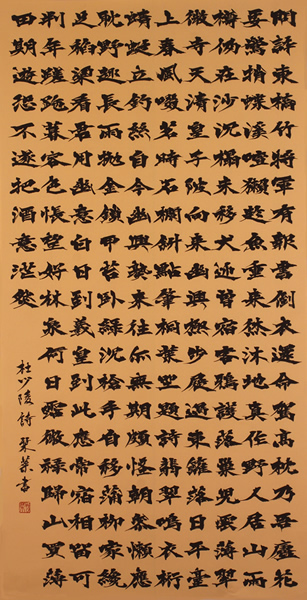 問訊東橋竹將軍有報書倒衣還命駕高枕乃吾廬花
妥鶯捎蝶溪喧獺趁魚重來休沐地真作野人居山
雨樽仍在沙沉榻未移犬迎曾宿客鴉護落巢兒雲薄翠
微寺天清皇子陂向來幽興極步屧過東籬落日平臺
上春風啜茗時石欄斜點筆桐葉坐題詩翡翠鳴衣桁
蜻蜓立釣絲自今幽興熟來往亦無期頗怪朝參懶應
耽野趣長雨拋金鎖甲苔臥綠沉槍手自移蒲柳家纔
足稻粱看君用幽意白日到羲皇到此應常宿相留可
判年蹉跎暮容色悵望好林泉何日霑微祿歸山買薄
田斯遊恐不遂把酒意茫然
杜少陵詩 書